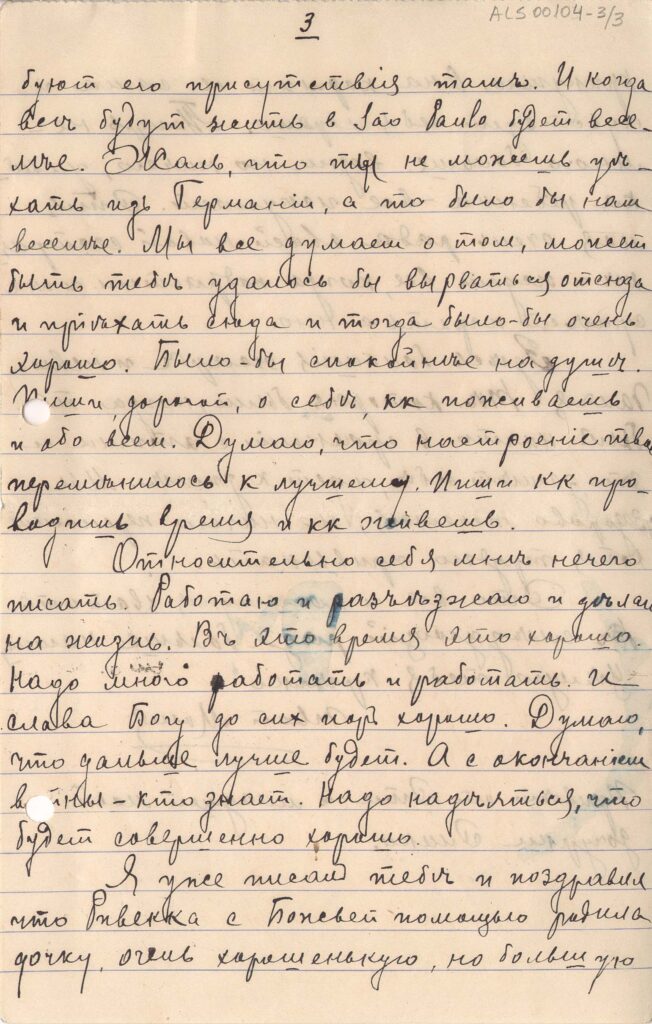 ALS 00104-3/3
3
буют его присутствія тамъ. И когда
всѣ будут жить в São Paulo будет весе-
лѣе. Жаль, что ты не можешь уѣ-
хать изъ Германіи, а то было бы нам
веселѣе. Мы все думаем о том, может
быть тебѣ удалось бы вырваться отсюда
и пріѣхать сюда и тогда было-бы очень
хорошо. Было-бы спокойнѣе на душѣ.
Пиши, дорогой, о себѣ, кк поживаешь
и обо всем. Думаю, что настроеніе твое
перемѣнилось к лучшему. Пиши кк про-
водишь время и кк живешь.
Относительно себя мнѣ нечего
писать. Работаю и разъѣзжаю и дѣлаю
на жизнь. Въ это время это хорошо.
Надо много работать и работать. И
слава Богу до сих пор хорошо. Думаю,
что дальше лучше будет. А с окончаніем
войны – кто знает. Надо надѣяться, что
будет совершенно хорошо.
Я уже писал тебѣ и поздравил
что Ривекка с Божьей помощью родила
дочку, очень хорошенькую, но большую